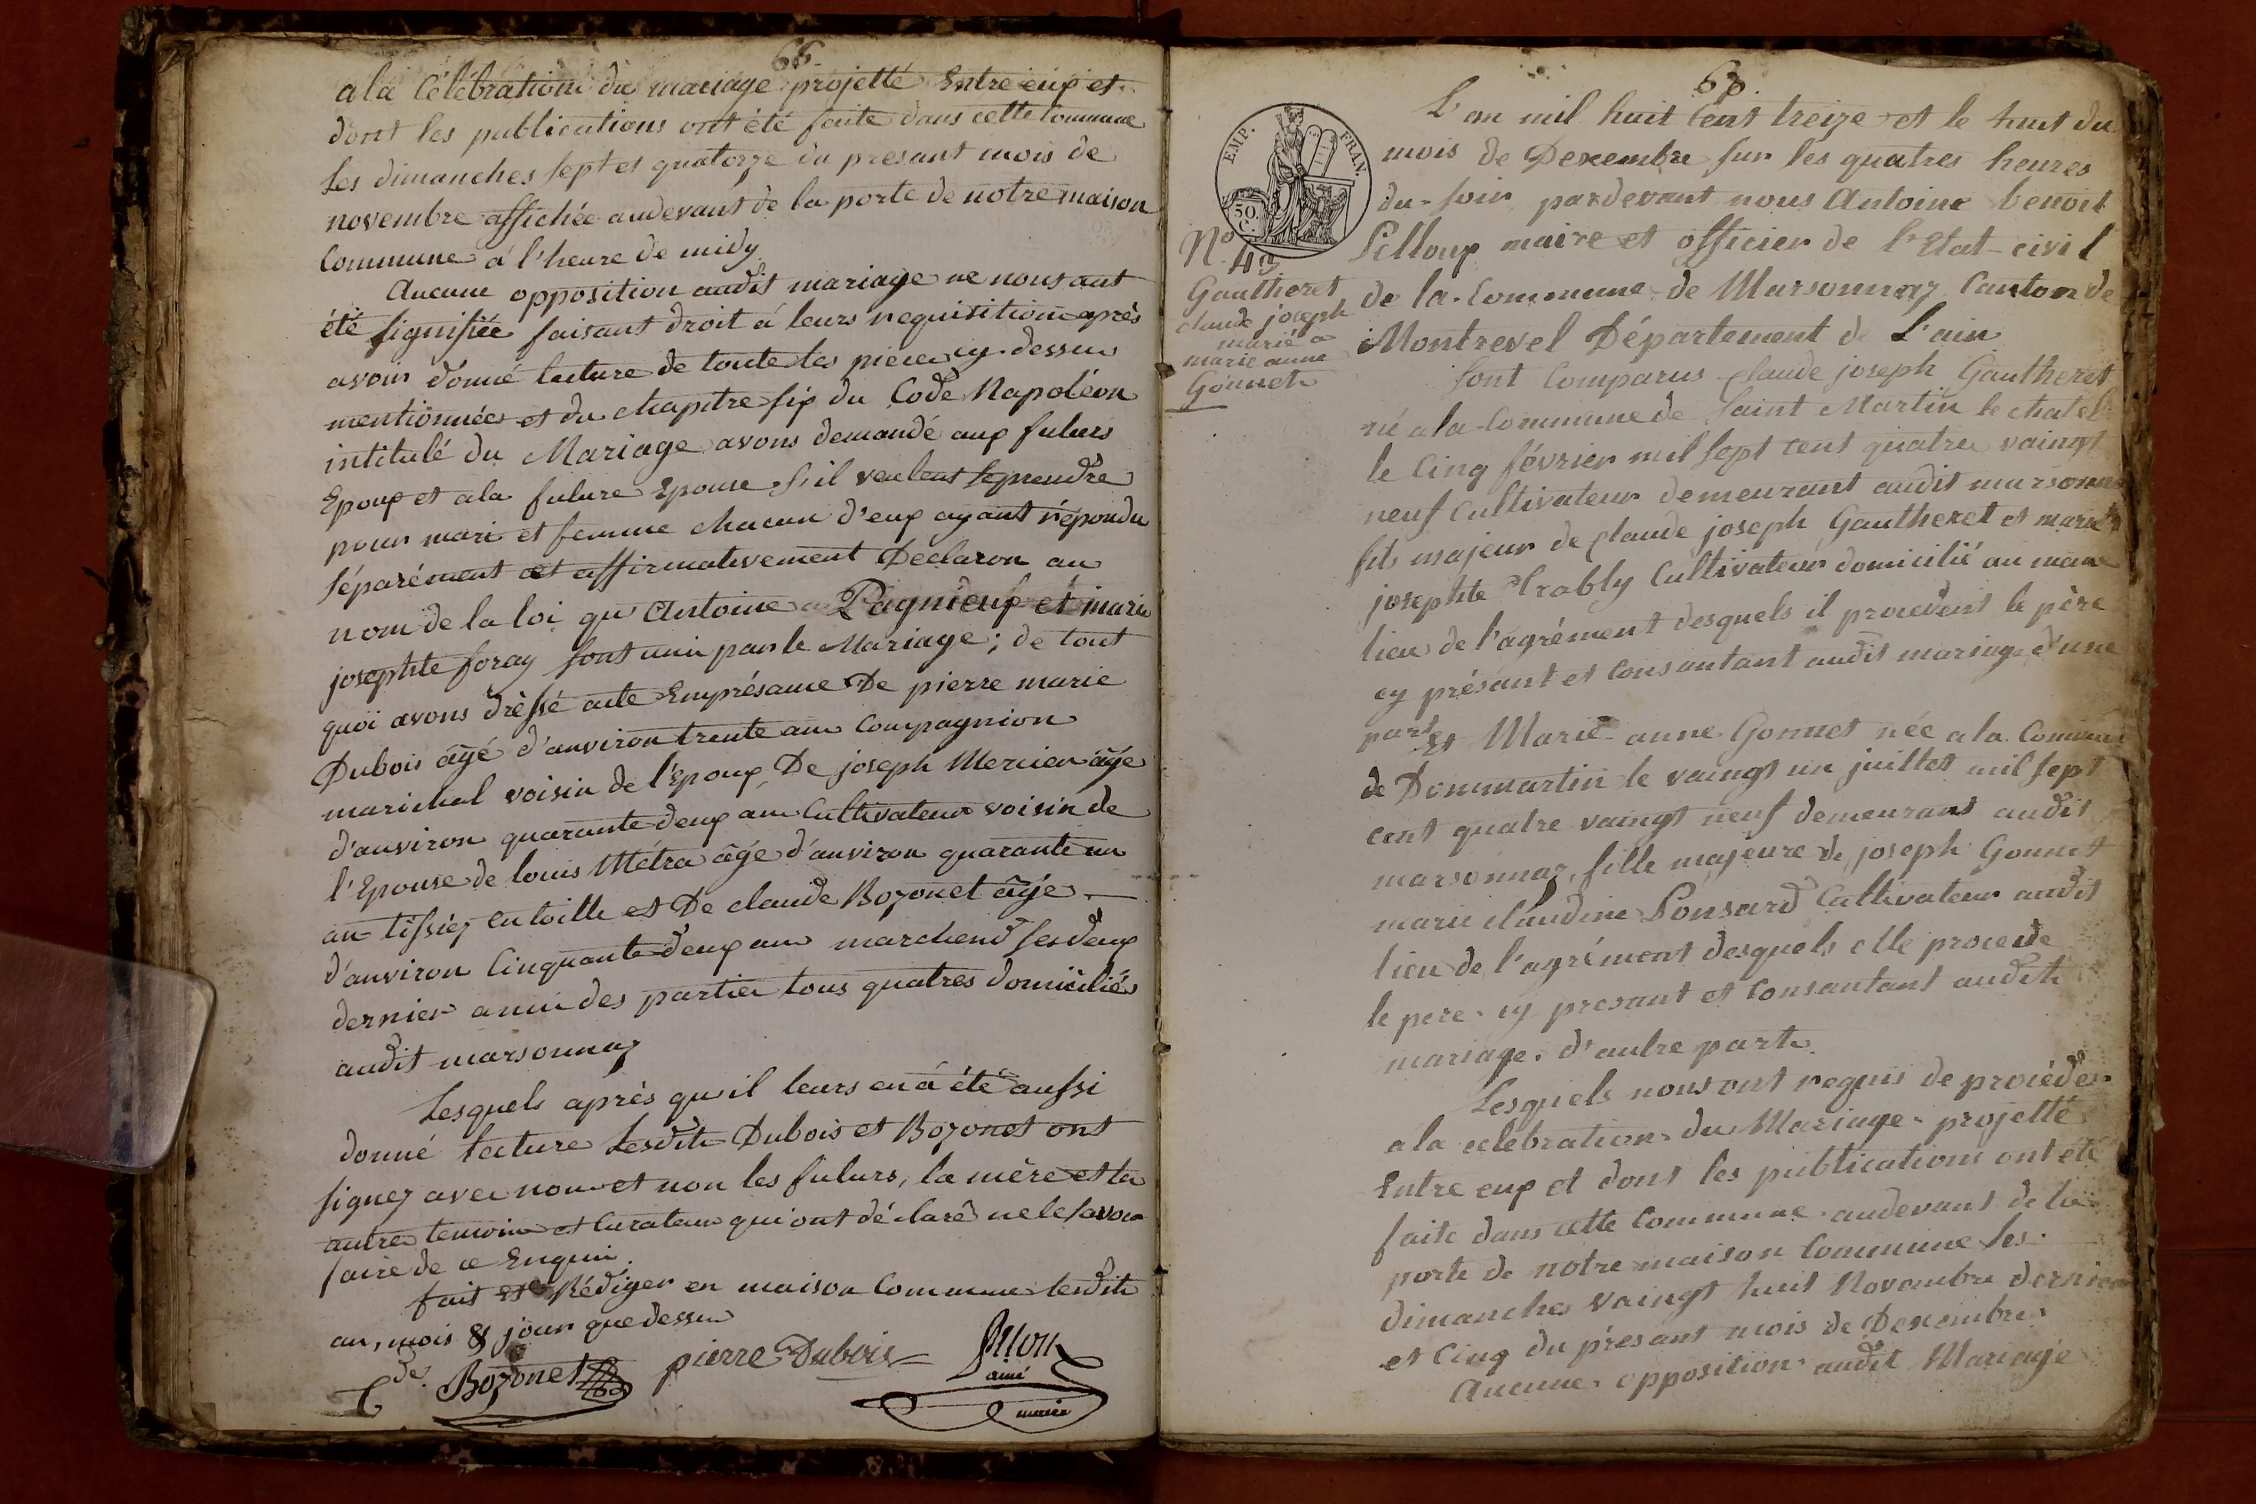 66.
a la Célébration du mariage projetté Entre eux et
dont les publications ont été faite dans cette Commune
Les dimanches sept et quatorze du presant mois de
novembre affichée audevant de la porte de notre maison
Commune a l'heure de midy
Aucune opposition audit mariage ne nous aut
été signifiée faisant droit á leurs requisition après
avoir donné lecture de toute les piece cy-dessu
mentionnées et du chapitre six du Code Napoléon
intitulé du Mariage avons demandé aux futurs
Epoux et a la future Epouse s'il veulent se prendre
pour mari et femme chacun d'eux ayant répondu
séparément et affirmativement Declaron au
nom de la loi qu'Antoine Pagnieux et marie
josephte foray sont uni par le Mariage; de tout
quoi avons drèssé acte Emprésance De pierre marie
Dubois âgé d'anviron trente ans Compagnion
marichal voisin de l'Epoux, De joseph Mercier âgé
d'anviron quarante deux ans Cultivateur voisin de
l'Epouse de louis Métra âgé d'anviron quarante un
an tissiez en toille et De claude Bozonet âgé
d'anviron Cinquante deux ans marchend les deux
dernier ami des partier tous quatres domicilié
audit marsonnaz
Lesquels après qu'il leurs en á été aussi
donné lecture Lesdit Dubois et Bozonet ont
signez avec nous et non les futurs, la mère et la
autre temoin et Curateur qui ont déclaré ne le savoir
faire de ce Enquis.
fait et Rédiger en maison Commune lesdits
an, mois & jour que dessus
Cde. Bozonet pierre Dubois
ainé
maire
67.
EMP. FRAN.
50. C.
L'an mil huit Cent treize et le huit du
mois de Dexembre sur les quatres heures
du soir pardevant nous Antoine benoit
Pilloux maire et officier de l'Etat-civil
de la Commune de Marsonnaz Canton de
Montrevel Département de L'ain
No. 49
Gautheret
claude joseph
marié a
marie anne
Gonnet
Sont Comparus claude joseph Gautheret
né a la Commune de Saint Martin le chatel
le Cinq février mil sept cent quatre vaingt
neuf Cultivateur demeurant audit marsonna
fils majeur de claude joseph Gautheret et marie
josephte Cultivateur domicilié au même
lieu de l'agrément desquels il procedent le père
cy présant et Consantant audit mariage d'une
part
Et Marie anne Gonnet née a la Commune
de Dommartin le vaingt un juillet mil sept
cent quatre vaingt neuf demeurant audit
marsonnaz, fille majeure de joseph Gonnet
marie claudine Ponsard Cultivateur audit
lieu de l'agrément desquels elle procede
le pere cy presant et Consantant audit
mariage. d'autre part.
Lesquels nous ont requis de procéder
a la célébration du Mariage projetté
Entre eux et dont les publications ont été
faite dans cette Commune audevant de la
porte de notre maison Commune les
dimanches vaingt huit Novembre dernier
et Cinq du présant mois de Dexembre
Aucune opposition audit Mariage